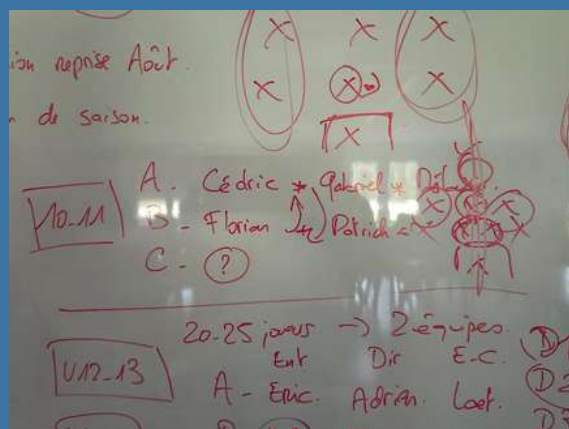 ion reprise Août.
n de saison.
U10-11
A - Cédric * Gabriel *
B - Florian Patrick
C - ?
20-25 joueurs → 2 équipes.
Ent Dir E-C.
U12-13
A - Eric. Adrien. Laet.
D
D2
D3